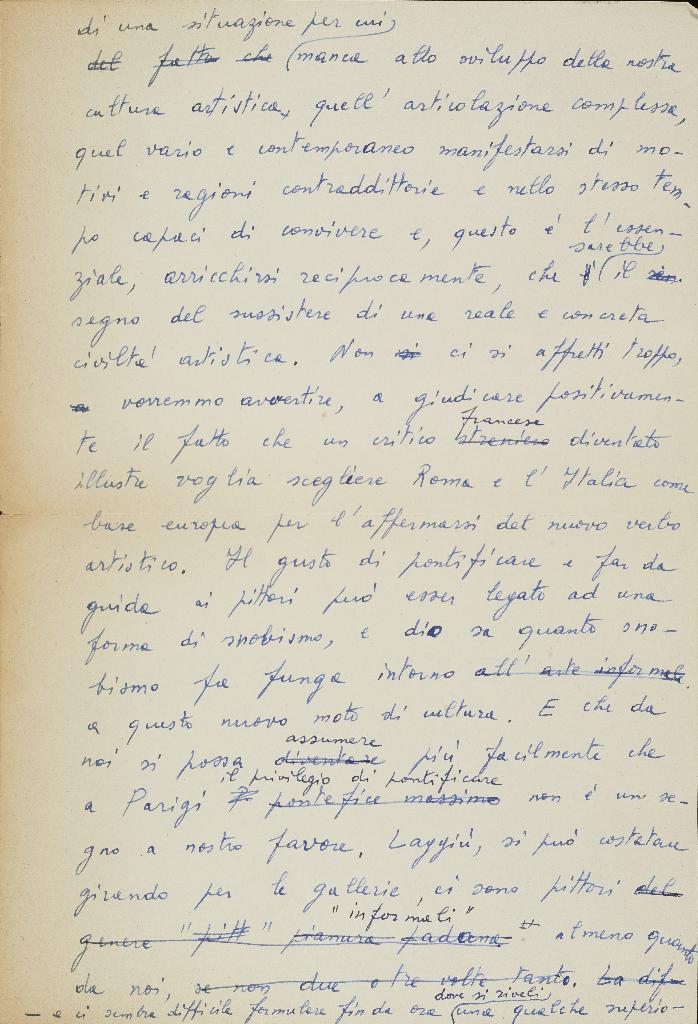 di una situazione per cui,
del fatto che (manca allo sviluppo della nostra
cultura artistica, quell' articolazione complessa,
quel vario e contemporaneo manifestarsi di mo-
tivi e ragioni contraddittorie e nello stesso tem-
po capaci di convivere e, questo è l'essen-
sarebbe
ziale, arricchirsi reciprocamente, che (il
segno del sussistere di una reale e concreta
civiltà artistica. Non si ci si affretti troppo,
vorremmo avvertire, a giudicare positivamen-
francese
te il fatto che un critico straniero diventato
illustre voglia scegliere Roma e l'Italia come
base europea per l'affermarsi del nuovo verbo
artistico. Il gusto di pontificare e far da
guida ai pittori può esser legato ad una
forma di snobismo, e dio sa quanto sno-
bismo fa funga intorno all' arte informale.
a questo nuovo moto di cultura. E che da
assumere
noi si possa diventare più facilmente che
il privilegio di pontificare
a Parigi pontefice massimo non è un se-
gno a nostro favore. Laggiù, si può costatare
girando per le gallerie, ci sono pittori del
"informali"
genere "pitt" pianura padana almeno quanto
da noi, se non due o tre volte tanto. La dif-
dove si riveli
— e ci sembra difficile formulare fin da ora (una qualche superio-